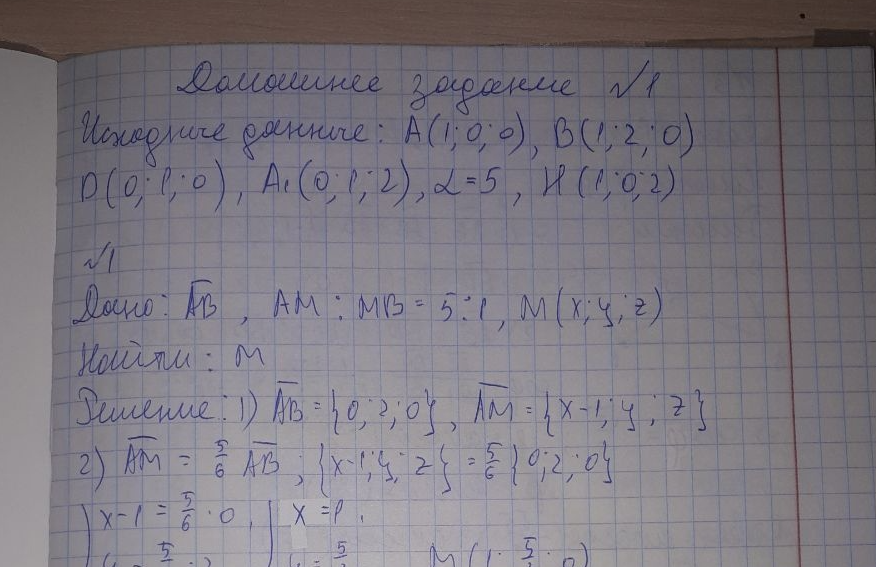 Домашнее задание №1
Исходные данные: A(1;0;0), B(1;2;0)
D(0;1;0), A₁(0;1;2), α=5, H(1;0;2)
№1
Дано: AB, AM:MB=5:1, M(x;y;z)
Найти: M
Решение: 1) AB={0;2;0}, AM={x-1;y;z}
2) AM = 5/6 AB; {x-1;y;z}=5/6{0;2;0}
x-1=5/6·0, x=1,